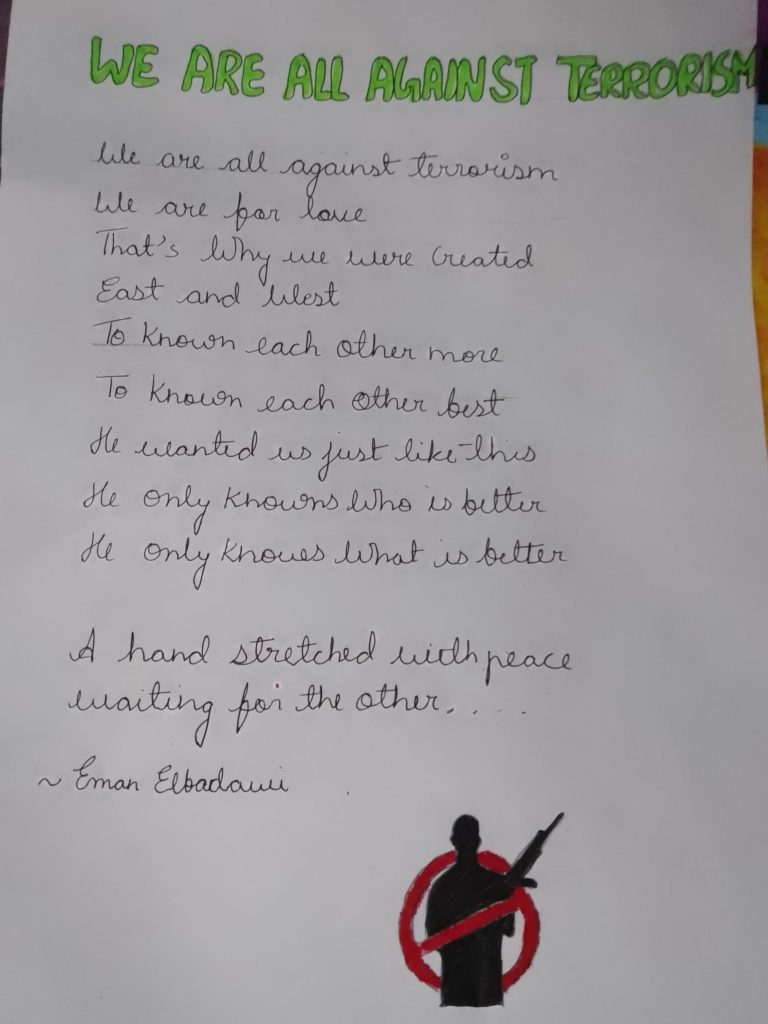 WE ARE ALL AGAINST TERRORISM
We are all against terrorism
We are for love
That's Why we were Created
East and West
To Known each other more
To Known each other best
He wanted us just like this
He only Knowns Who is better
He only Knowes What is better
A hand stretched with peace
waiting for the other....
~ Eman Elbadawi